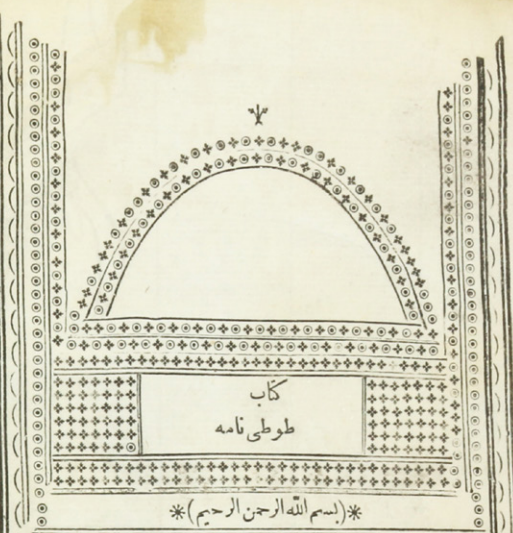 كتاب
طوطى نامه
*(بسم الله الرحمن الرحيم)*